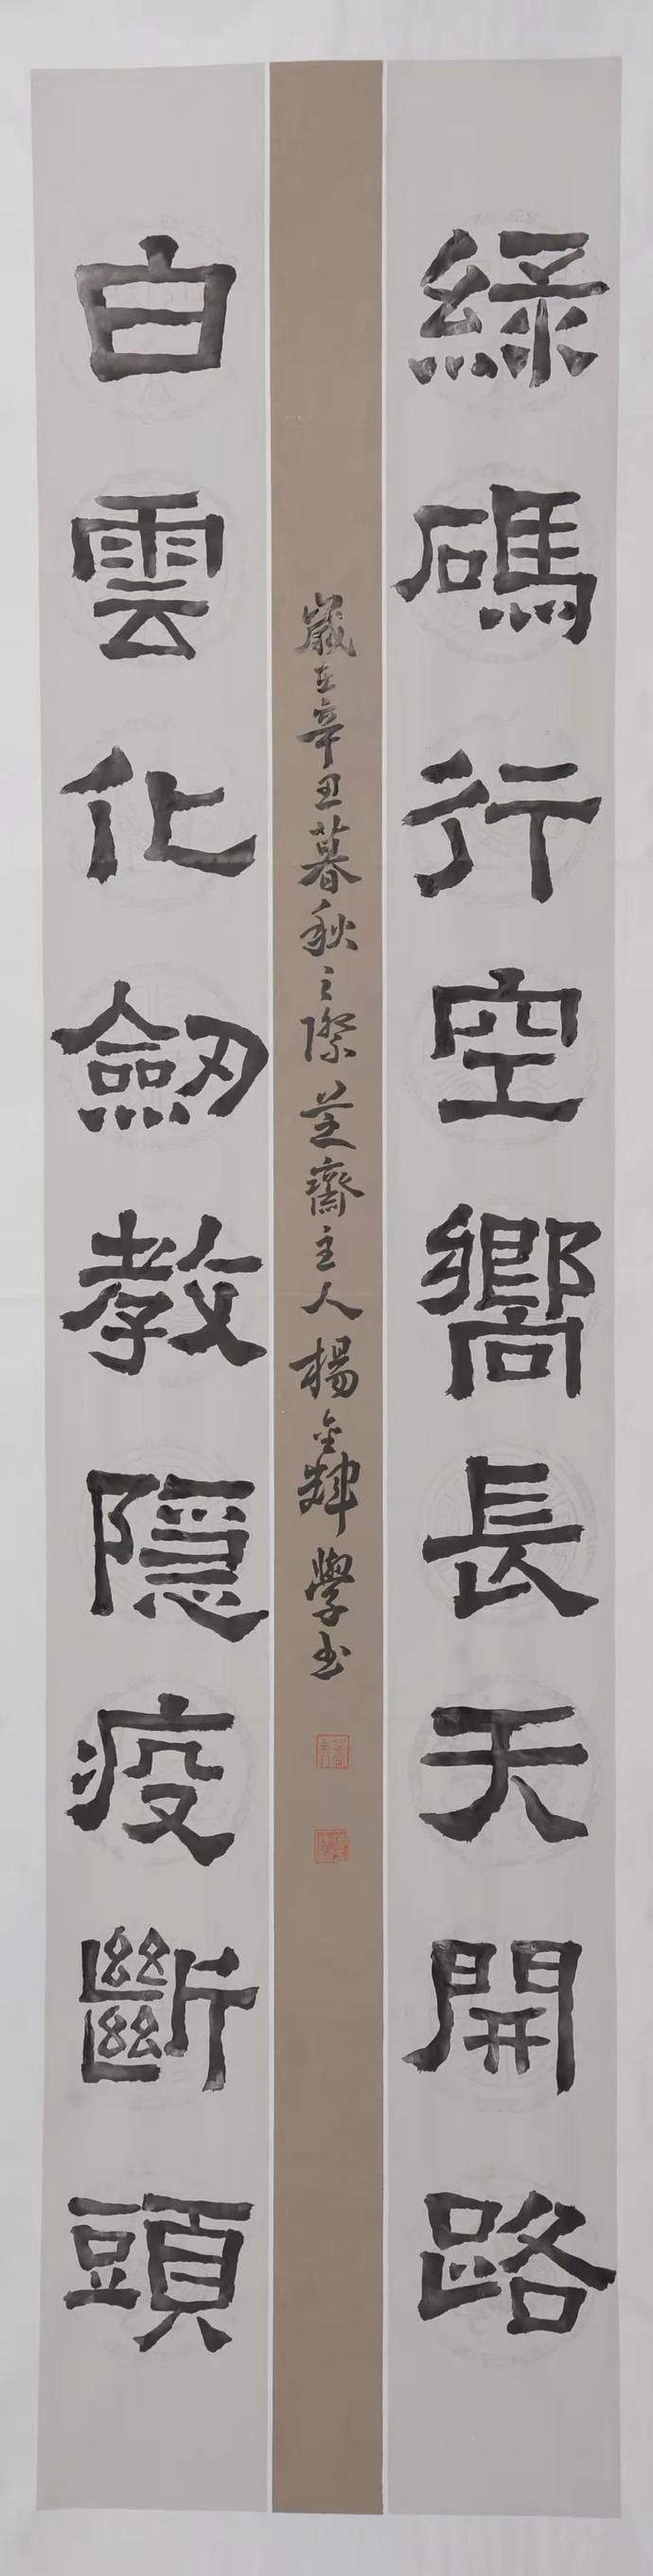 綠碼行空嚮長天開路
白雲化劒教隱疫斷頭
歲在辛丑暮秋之際芝齋主人楊金輝學书